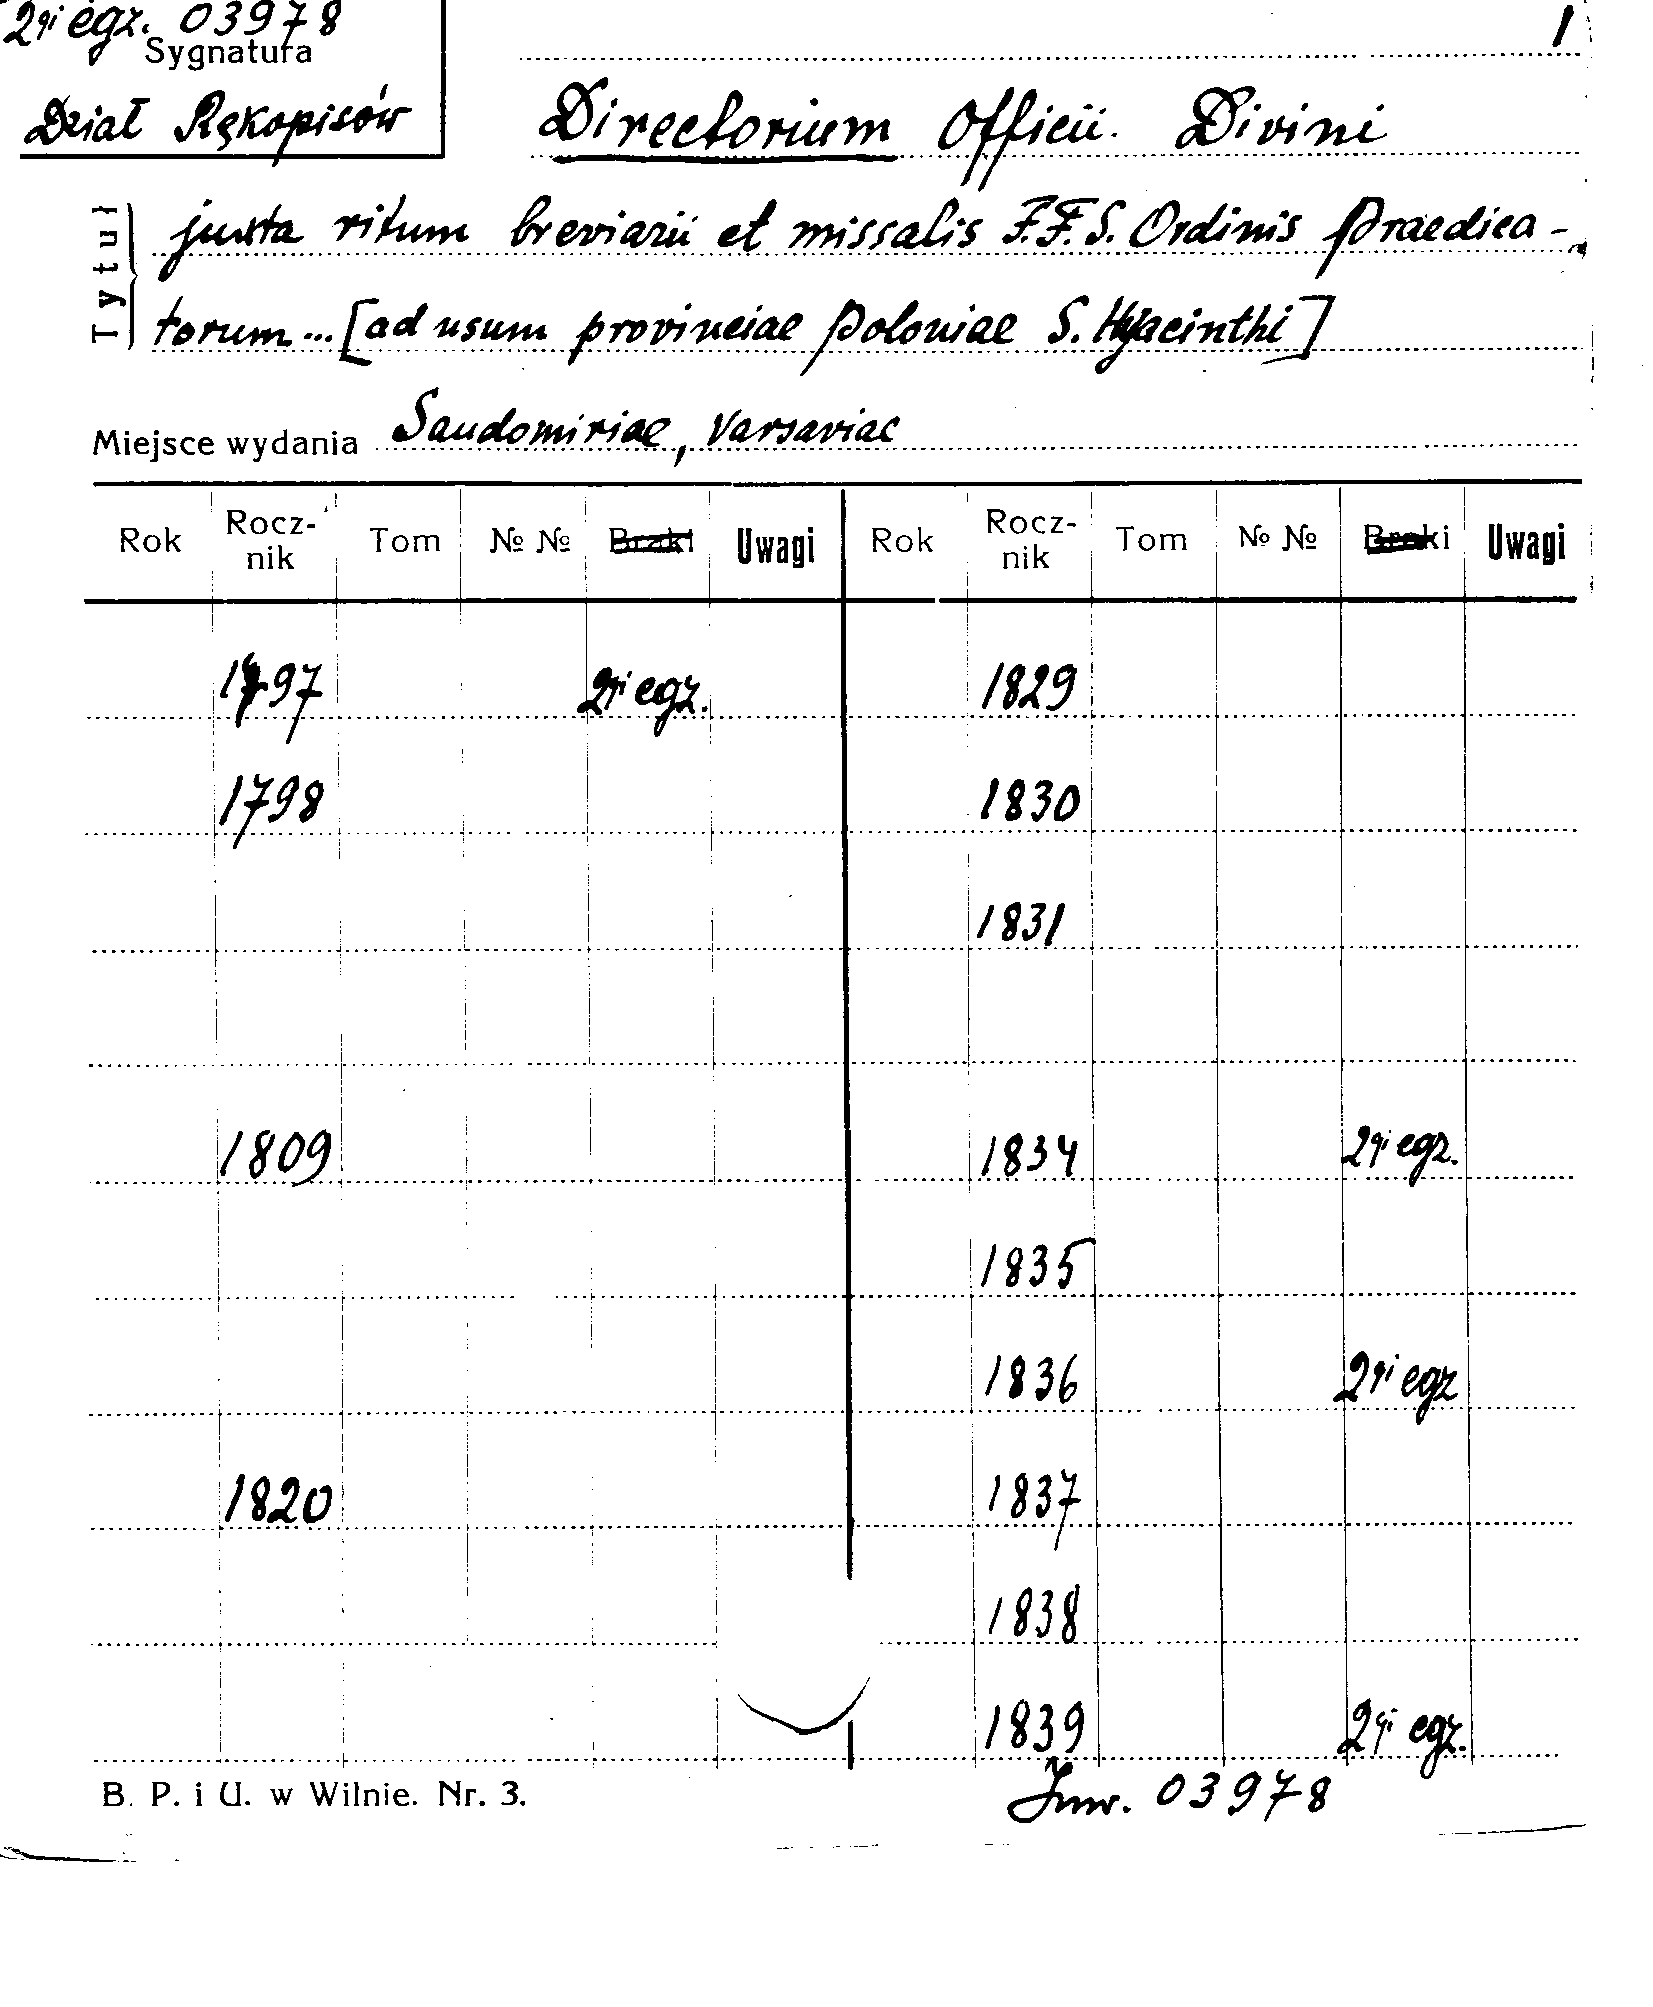 2gi egz. 03978
1
Sygnatura
Dział Rękopisów
Directorium Officii Divini
Tytuł
juxta ritum breviarii et missalis F.F.S. Ordinis Praedica-
torum... [ad usum provinciae Poloniae S. Hyacinthi]
Miejsce wydania Sandomiriae, Varsaviae
Rok Rocz-nik Tom № № Braki Uwagi Rok Rocz-nik Tom № № Braki Uwagi
1797 2gi egz. 1829
1798 1830
1831
1809 1834 2gi egz.
1835
1836 2gi egz
1820 1837
1838
1839 2gi egz.
B. P. i U. w Wilnie. Nr. 3.
Inw. 03978